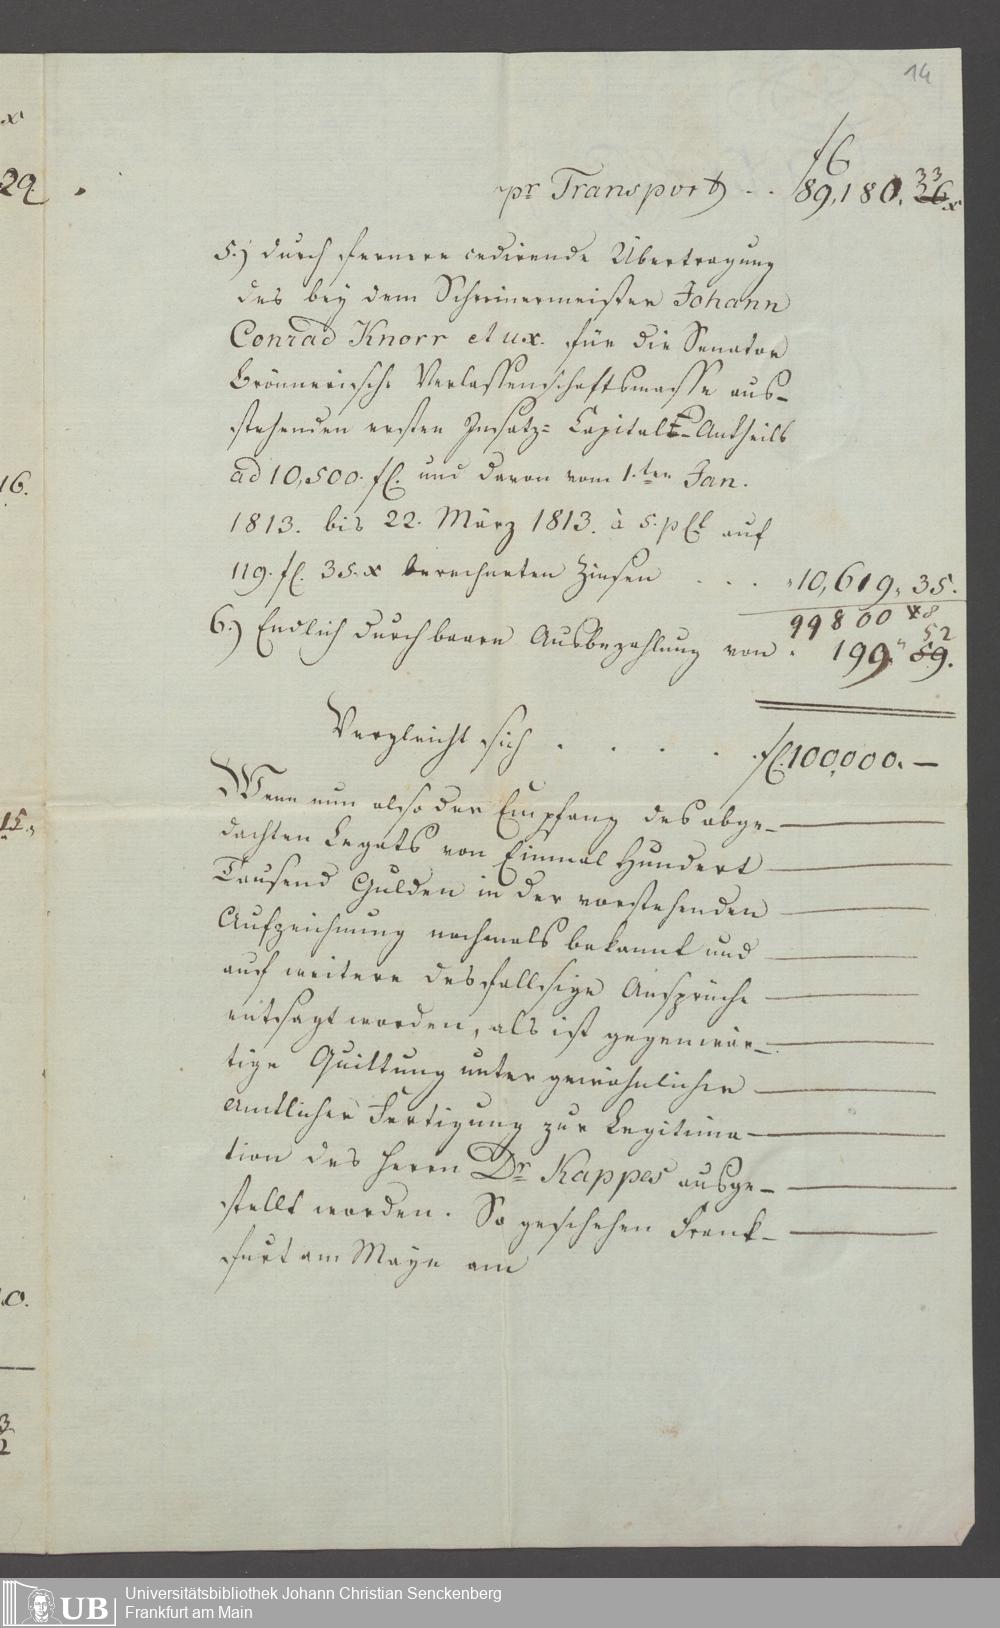 14
fl
pr Transport . . 89,180. 33 26 x
5.) durch fernere cedirende Übertragung
des bey dem Schreinermeister Johann
Conrad Knorr et ux. für die Senator
Brönnerische Verlassenschaftsmasse aus-
stehenden ersten Insatz= Capital-Antheils
ad 10,500. fl. und davon vom 1.ten Jan.
1813. bis 22. März 1813. à 5. pCt auf
119. fl. 35. x berechneten Zinsen . . . "10,619," 35.
99800 8
6.) Endlich durch baare Ausbezahlung von . 199." 52 59.
Vergleicht sich . . . . fl. 100,000. —
Wenn nun also der Empfang des abge-
dachten Legats von Einmal Hundert
Tausend Gulden in der vorstehenden
Aufzeichnung nochmals bekannt und
auf weitere desfallsige Ansprüche
entsagt worden, als ist gegenwär-
tige Quittung unter gewöhnlicher
Amtlicher Fertigung zur Legitima-
tion des Herrn Dr Kappes ausge-
stellt worden. So geschehen Frank-
furt am Mayn am
x
29
16.
15.,
0.
3
2
UB
Universitätsbibliothek Johann Christian Senckenberg
Frankfurt am Main